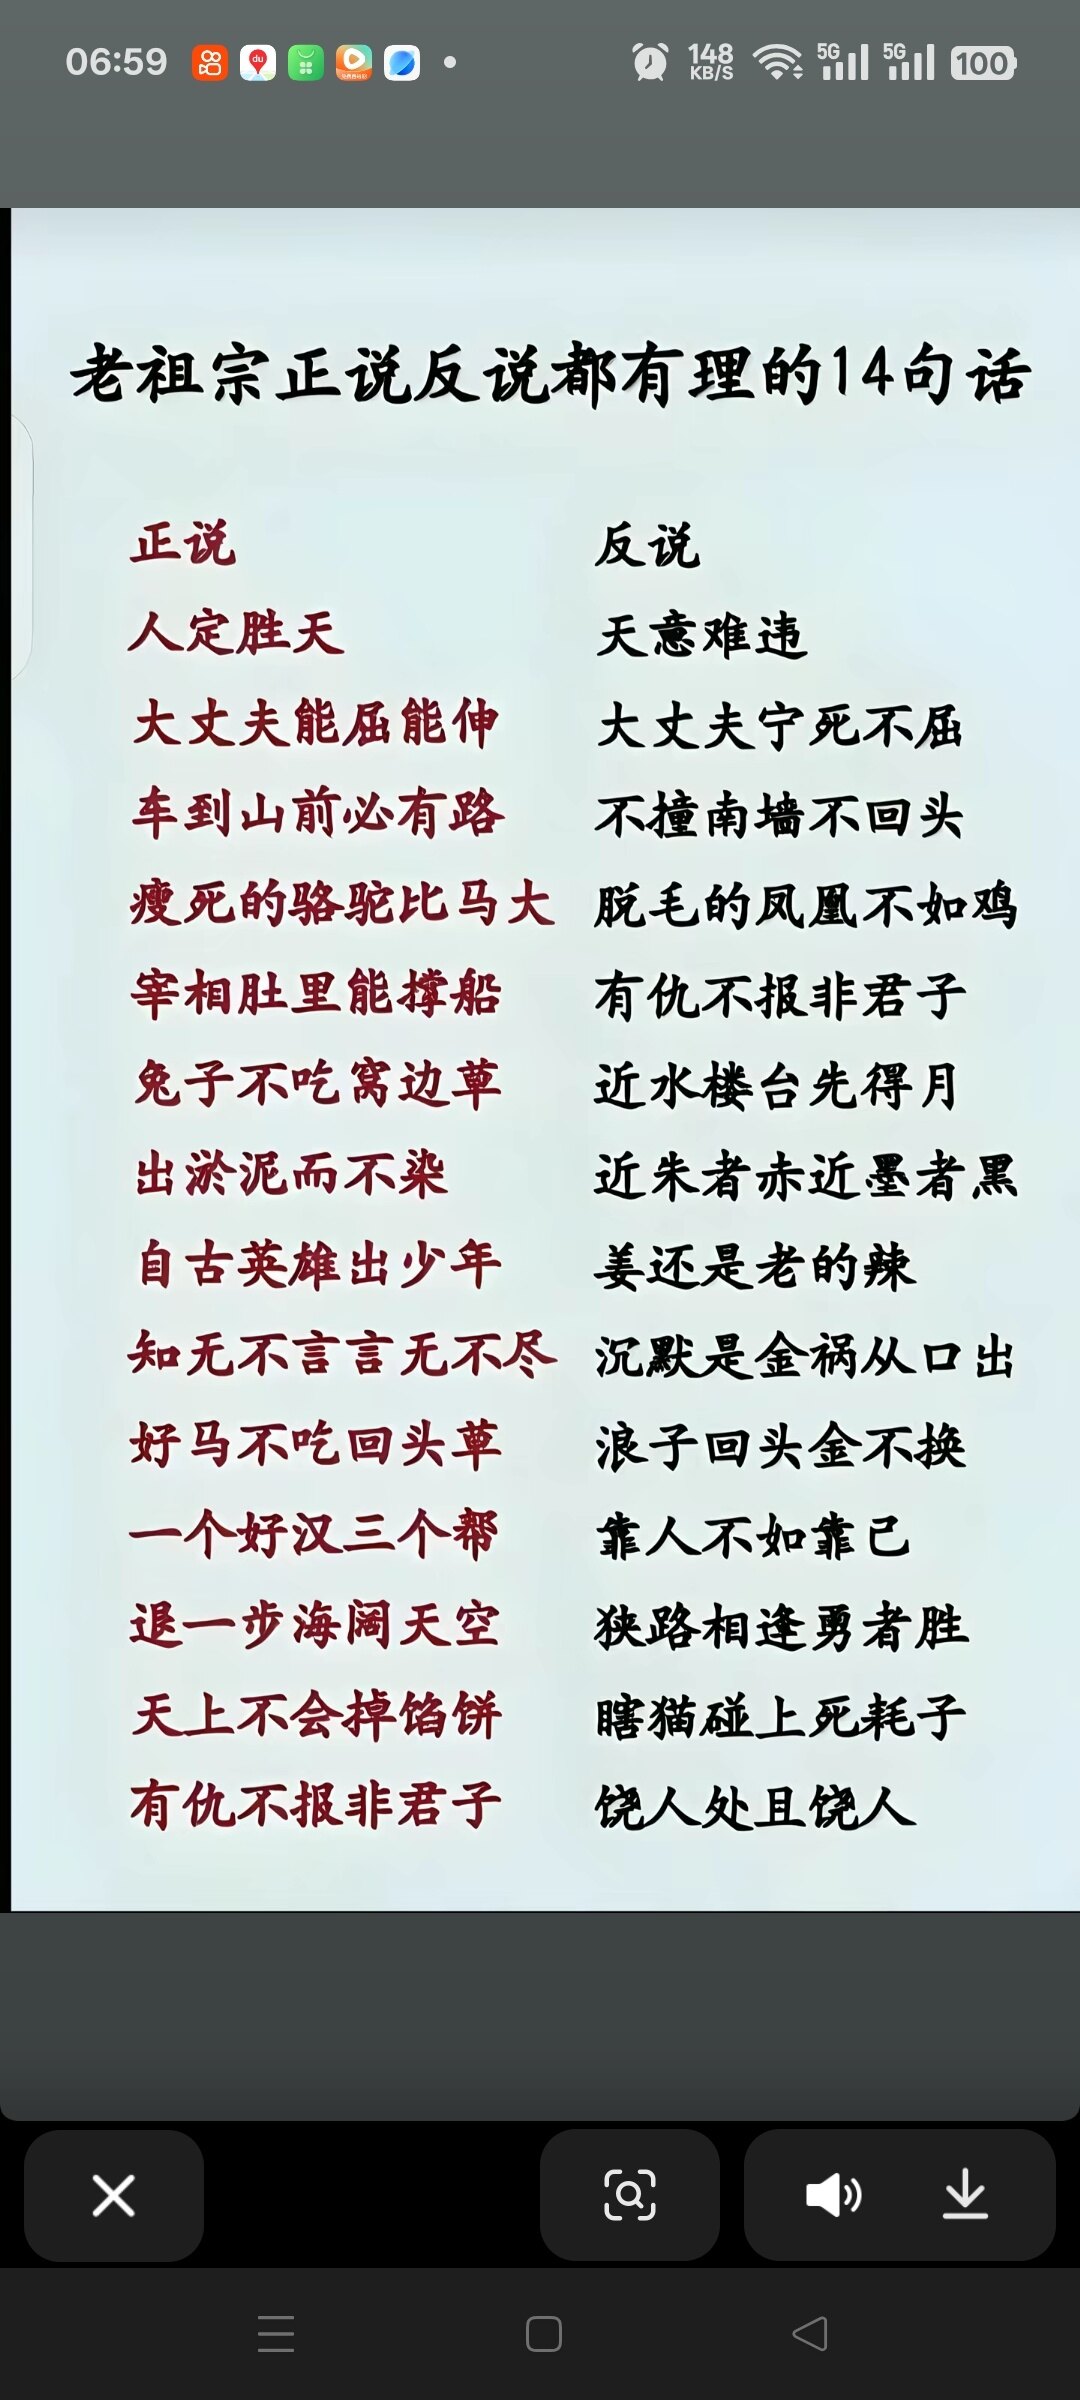 06:59
148 KB/S 5G 5G 100
老祖宗正说反说都有理的14句话
正说 反说
人定胜天 天意难违
大丈夫能屈能伸 大丈夫宁死不屈
车到山前必有路 不撞南墙不回头
瘦死的骆驼比马大 脱毛的凤凰不如鸡
宰相肚里能撑船 有仇不报非君子
兔子不吃窝边草 近水楼台先得月
出淤泥而不染 近朱者赤近墨者黑
自古英雄出少年 姜还是老的辣
知无不言言无不尽 沉默是金祸从口出
好马不吃回头草 浪子回头金不换
一个好汉三个帮 靠人不如靠已
退一步海阔天空 狭路相逢勇者胜
天上不会掉馅饼 瞎猫碰上死耗子
有仇不报非君子 饶人处且饶人